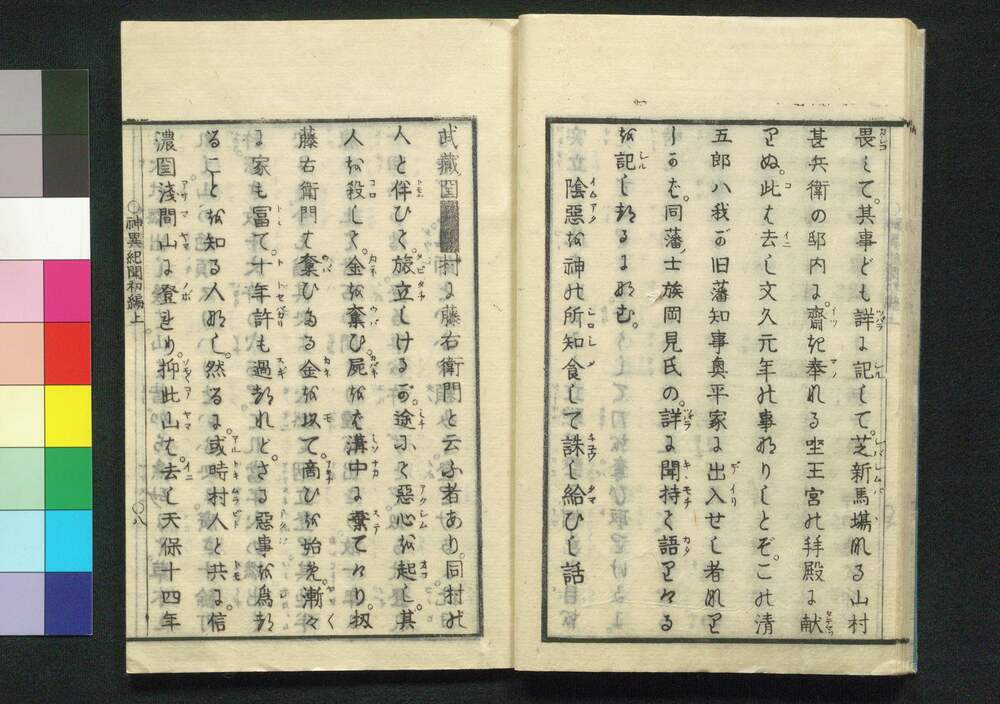 畏して。其事ども詳に記して。芝新馬場なる山村
甚兵衛の邸内に。齋き奉れる坐王宮の拜殿に献
りぬ。此は去し文久元年の事なりしとぞ。この清
五郎ハ我が旧藩知事奥平家に出入せし者なり
しかば。同藩士族岡見氏の。詳に聞持て語りける
を記しけるになむ。
陰惡を神の所知食して誅し給ひし話
武藏国 村に藤右衛門と云ふ者あり。同村の
人と伴ひて。旅立しけるが。途にて惡心を起し。其
人を殺して。金を奪ひ。屍をば溝中に棄てけり。扨
藤右衛門は奪ひたる金を以て。商ひを始免。漸々
に家も冨て。十年許も過けれど。さる惡事を爲け
ることを知る人なし。然るに。或時村人と共に。信
濃国淺間山に登たり。抑此山は去し天保十四年
神異紀聞初編上
○八